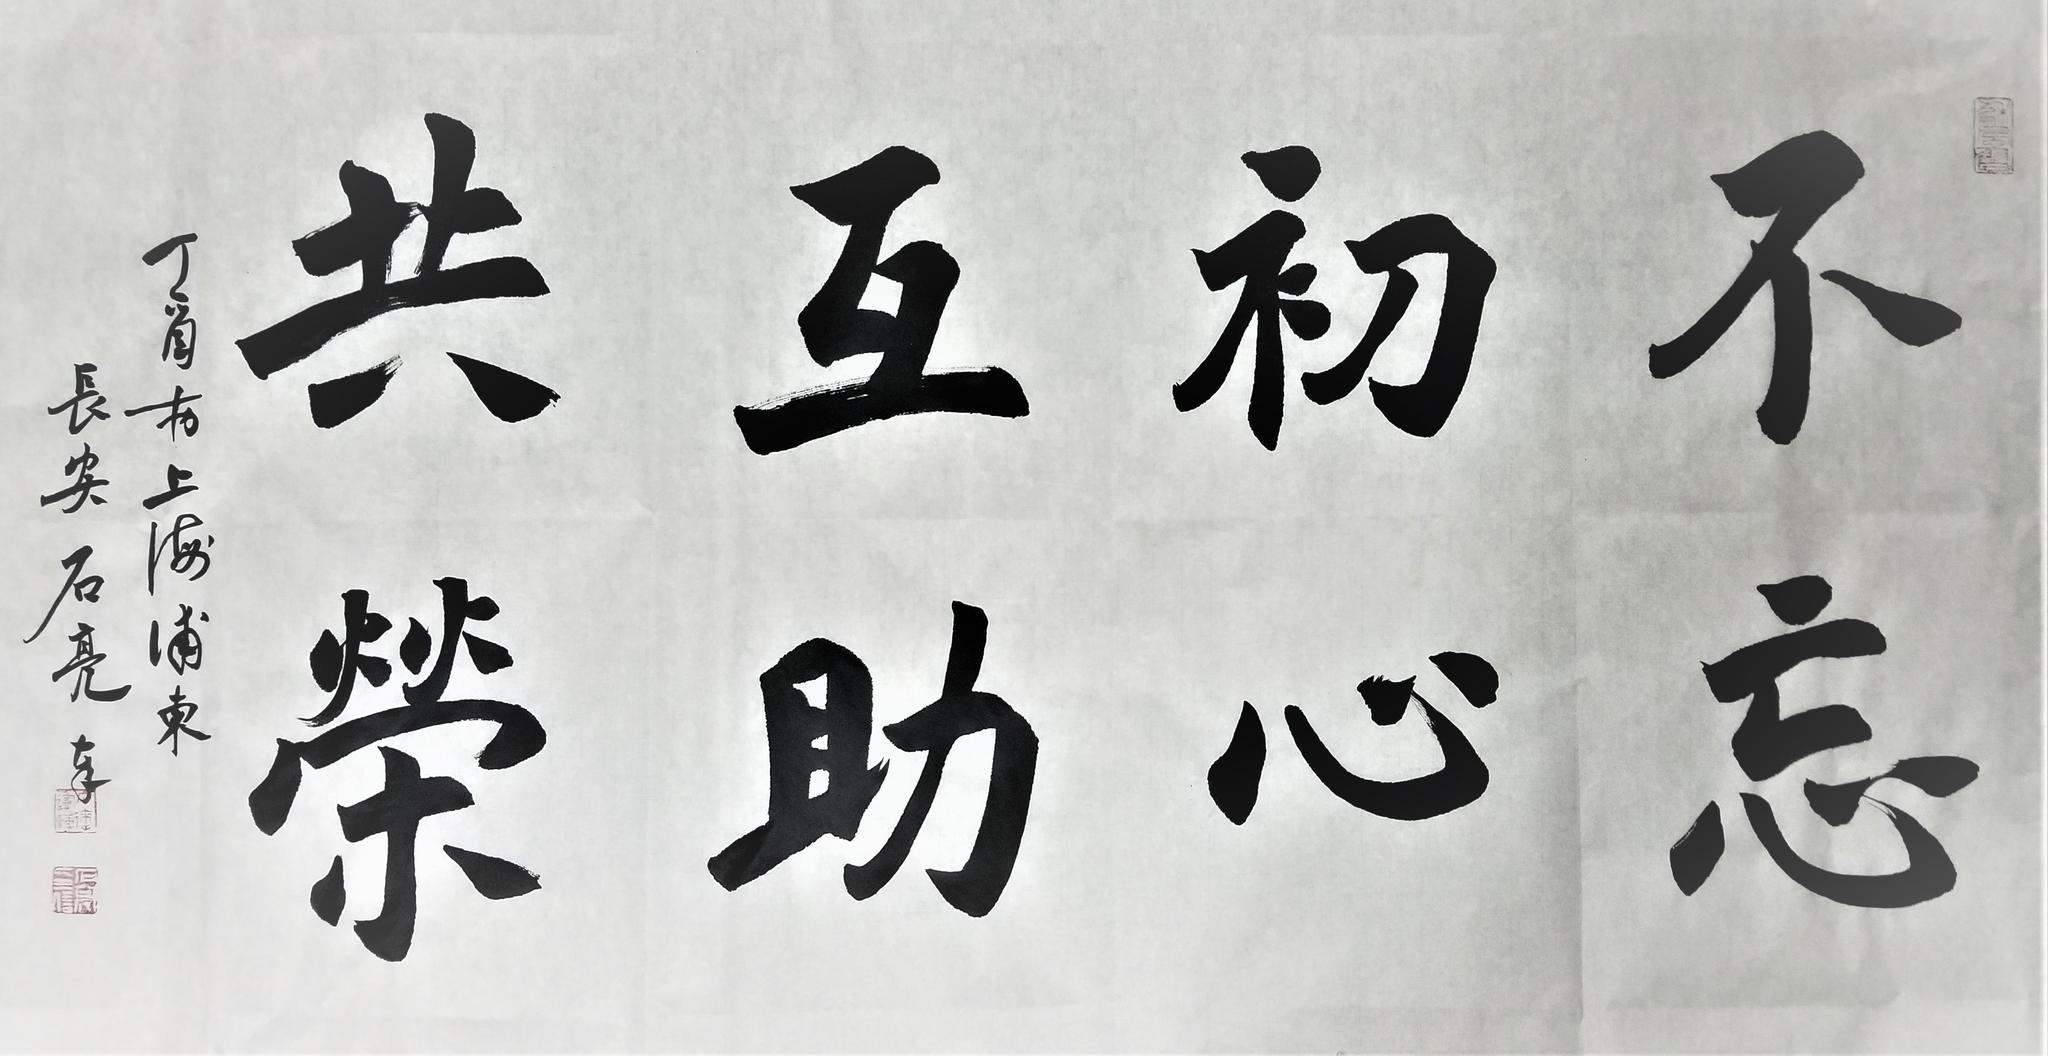 不忘
初心
互助
共榮
丁酉於上海浦東
長安石亮